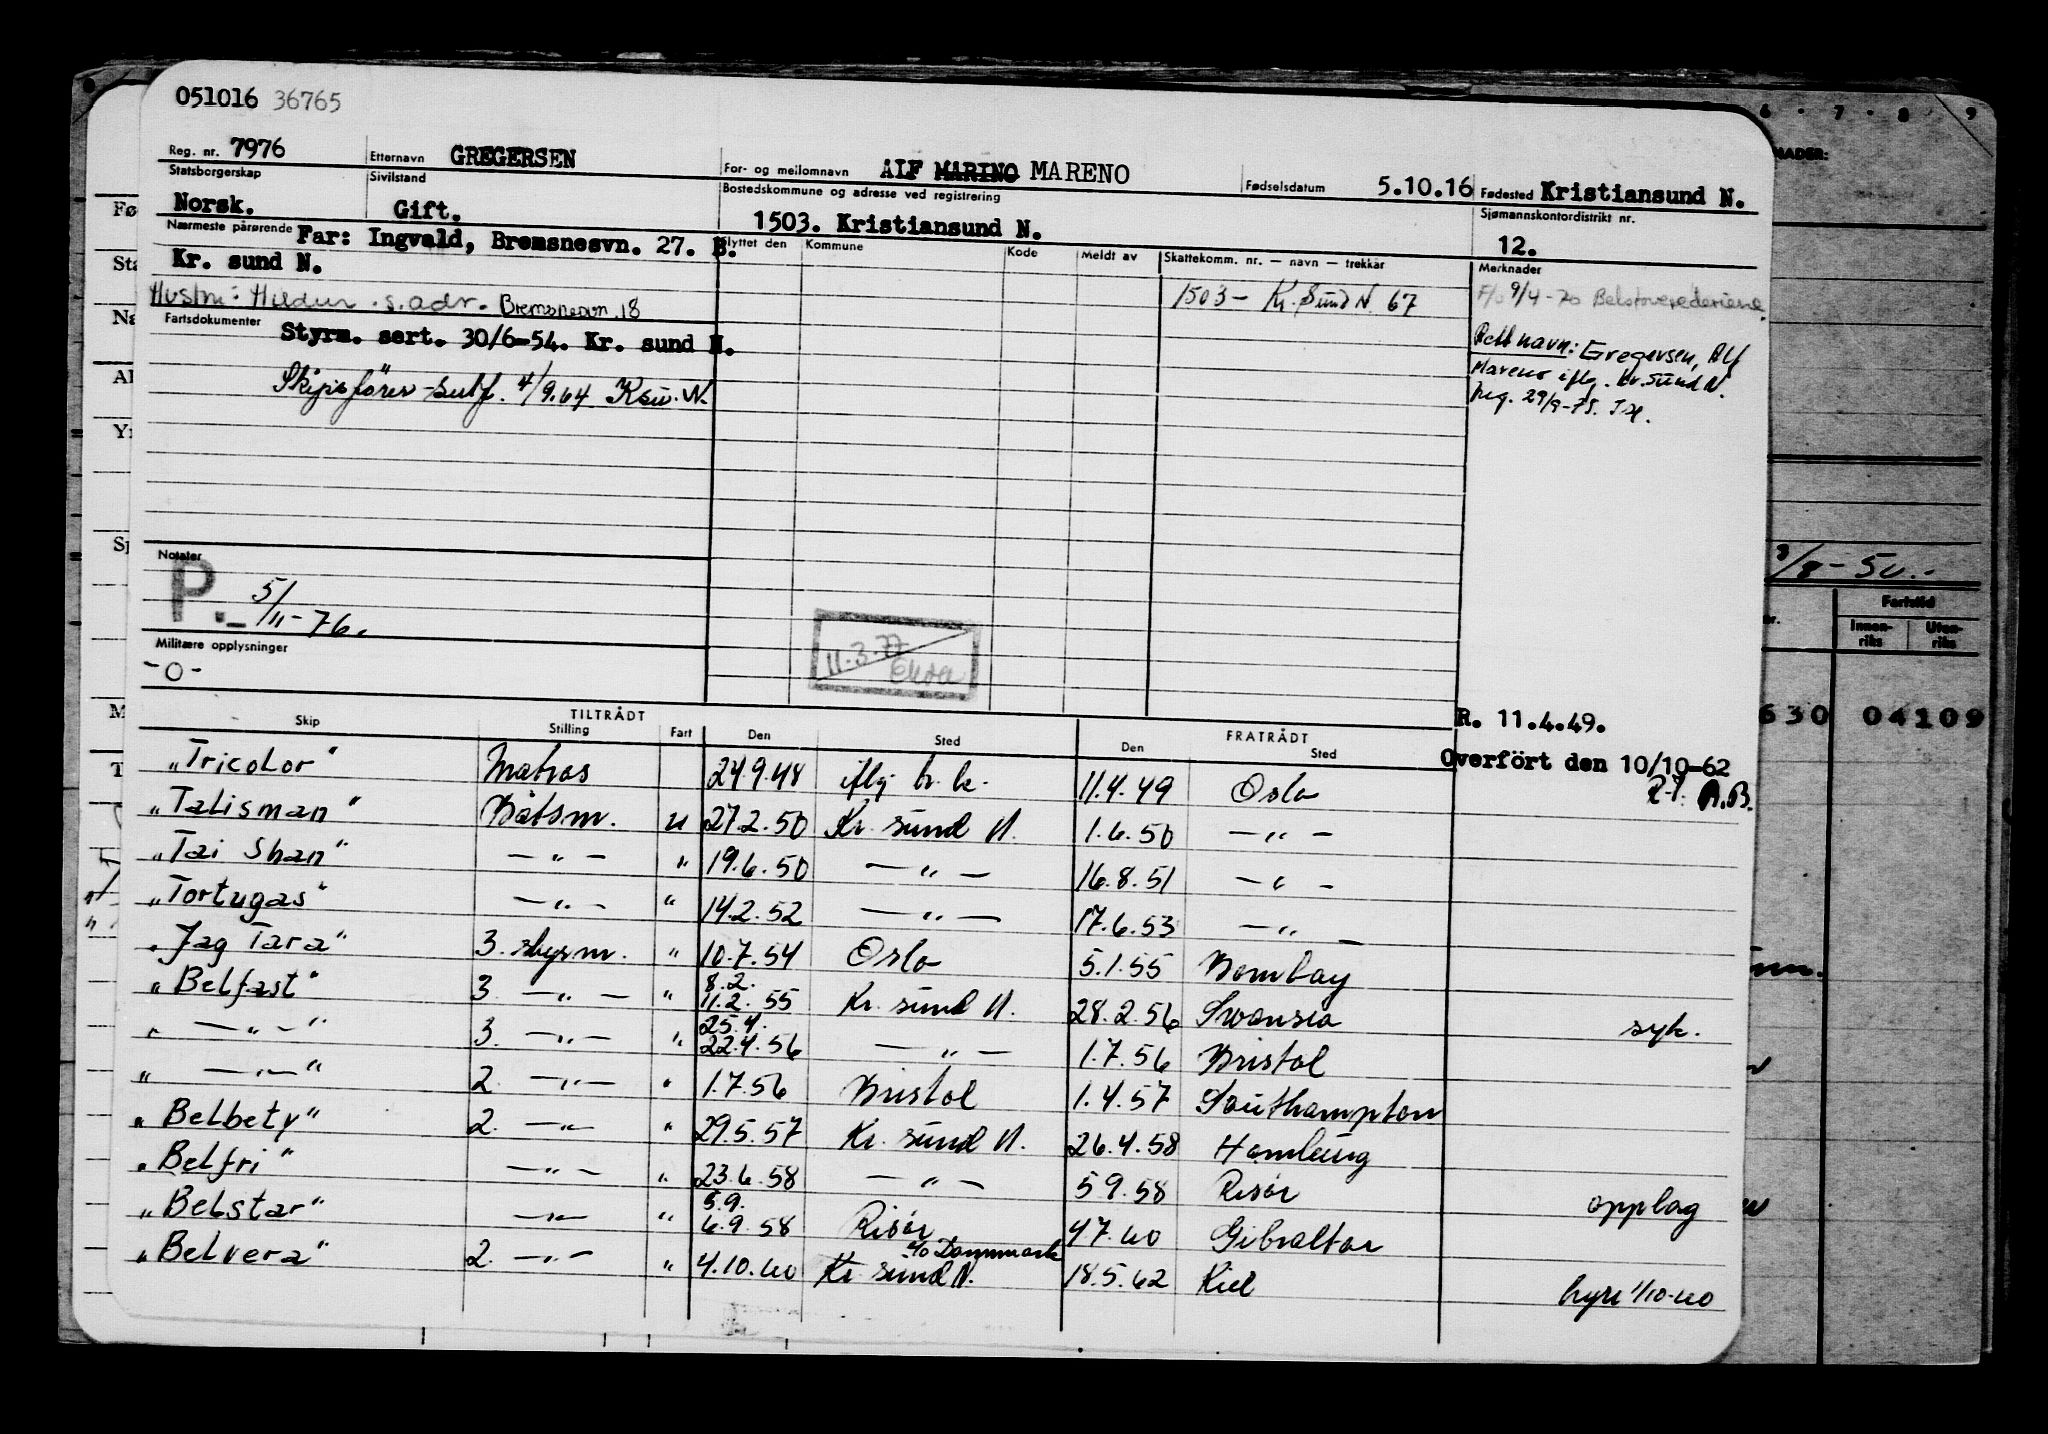 051016 36765
Reg. nr. 7976 Etternavn GREGERSEN For- og mellomnavn ALF MARINO MARENO Fødselsdatum 5.10.16 Fødested Kristiansund N.
Statsborgerskap Norsk. Sivilstand Gift. Bostedskommune og adresse ved registrering 1503. Kristiansund N. Sjømannskontordistrikt nr. 12.
Nærmeste pårørende Far: Ingvald, Bremsnesvn. 27. B. Flyttet den Kommune Kode Meldt av Skattekomm. nr. — navn — trekkår Merknader
Kr. sund N.
Hustru: Hildur s. adr. Bremsnesvn. 18 1503 - Kr. Sund N. 67 F/o 9/4-70 Belstoverederiene.
Fartsdokumenter
Styrm. sert. 30/6-54. Kr. sund N. Rett navn: Gregersen, Alf
Skipsfører-sertf. 4/9.64 Ksu. N. Mareno iflg. Kr. Sund N.
29/9-75.
Notater
P. 5/11-76.
Militære opplysninger
-0-
11.3.77
R. 11.4.49.
Overfört den 10/10-62
R.T. A.B.
TILTRÅDT FRATRÅDT
Skip Stilling Fart Den Sted Den Sted
„Tricolor" Matros 24.9.48 iflg. h.k. 11.4.49 Oslo
„Talisman" Båtsm. u 27.2.50 Kr. sund N. 1.6.50 — „ —
„Tai Shan" — „ — „ 19.6.50 — „ — 16.8.51 — „ —
„Tortugas" — „ — „ 14.2.52 — „ — 17.6.53 — „ —
„Jag Tara" 3. styrm. „ 10.7.54 Oslo 5.1.55 Bombay
„Belfast" 3. — „ — „ 8.2. 11.2.55 Kr. sund N. 28.2.56 Swansea syk.
„ — „ — " 3. — „ — „ 25.4. 22.4.56 — „ — 1.7.56 Bristol
„ — „ — " 2. — „ — „ 1.7.56 Bristol 1.4.57 Southampton
„Belbety" 2. — „ — „ 29.5.57 Kr. sund N. 26.4.58 Hamburg
„Belfri" — „ — „ 23.6.58 — „ — 5.9.58 Risör opplag
„Belstar" — „ — „ 5.9. 6.9.58 Risör 4.7.60 Gibraltar
„Belvera" 2. — „ — „ 4.10.60 Kr. sund N. t/o Danmark 18.5.62 Kiel hyre 1/10-60
6 · 7 · 8 · 9
NADER:
3/8-50.-
Fartstid
Innenriks Utenriks
630 04109